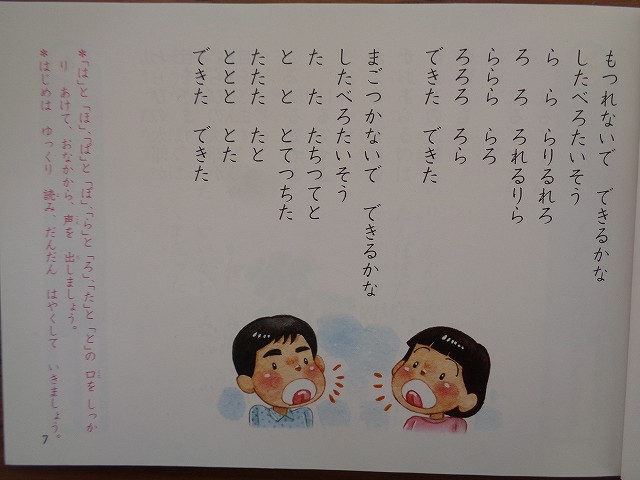 もつれないで　できるかな
したべろたいそう
ら　ら　らりるれろ
ろ　ろ　ろれるりら
ららら　らろ
ろろろ　ろら
できた　できた
まごつかないで　できるかな
したべろたいそう
た　た　たちつてと
と　と　とてつちた
たたた　たと
ととと　とた
できた　できた
＊「は」と「ほ」、「ぱ」と「ぽ」、「ら」と「ろ」、「た」と「と」の　口を　しっか
り　あけて、おなかから、声を　出しましょう。
＊はじめは　ゆっくり　読み、だんだん　はやくして　いきましょう。
7